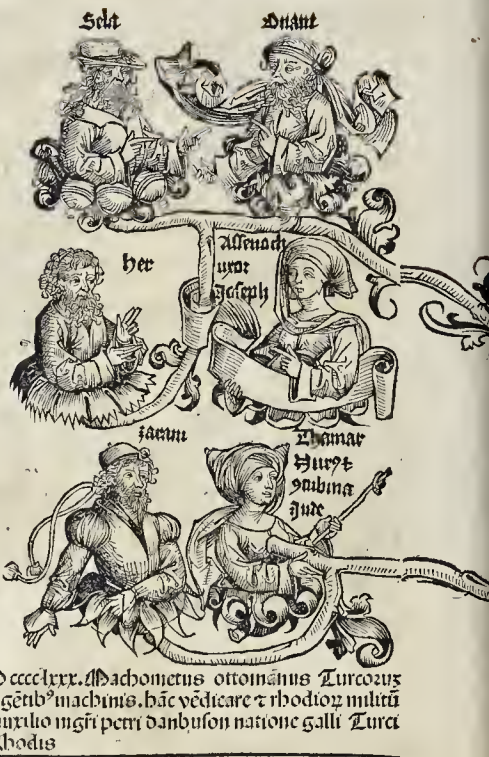 Sela Onani
her
Assenach
uxor
Joseph
zaram
Thamar
Nurꝰ ⁊
ꝯcubina
Jude
D cccclxxx. Machometus ottomanus Turcoruʒ
gētibꝰ machinis. hāc vēdicare ⁊ rhodioꝝ militū
auxilio mgr̄i petri danbuson natione galli Turci
Rhodis